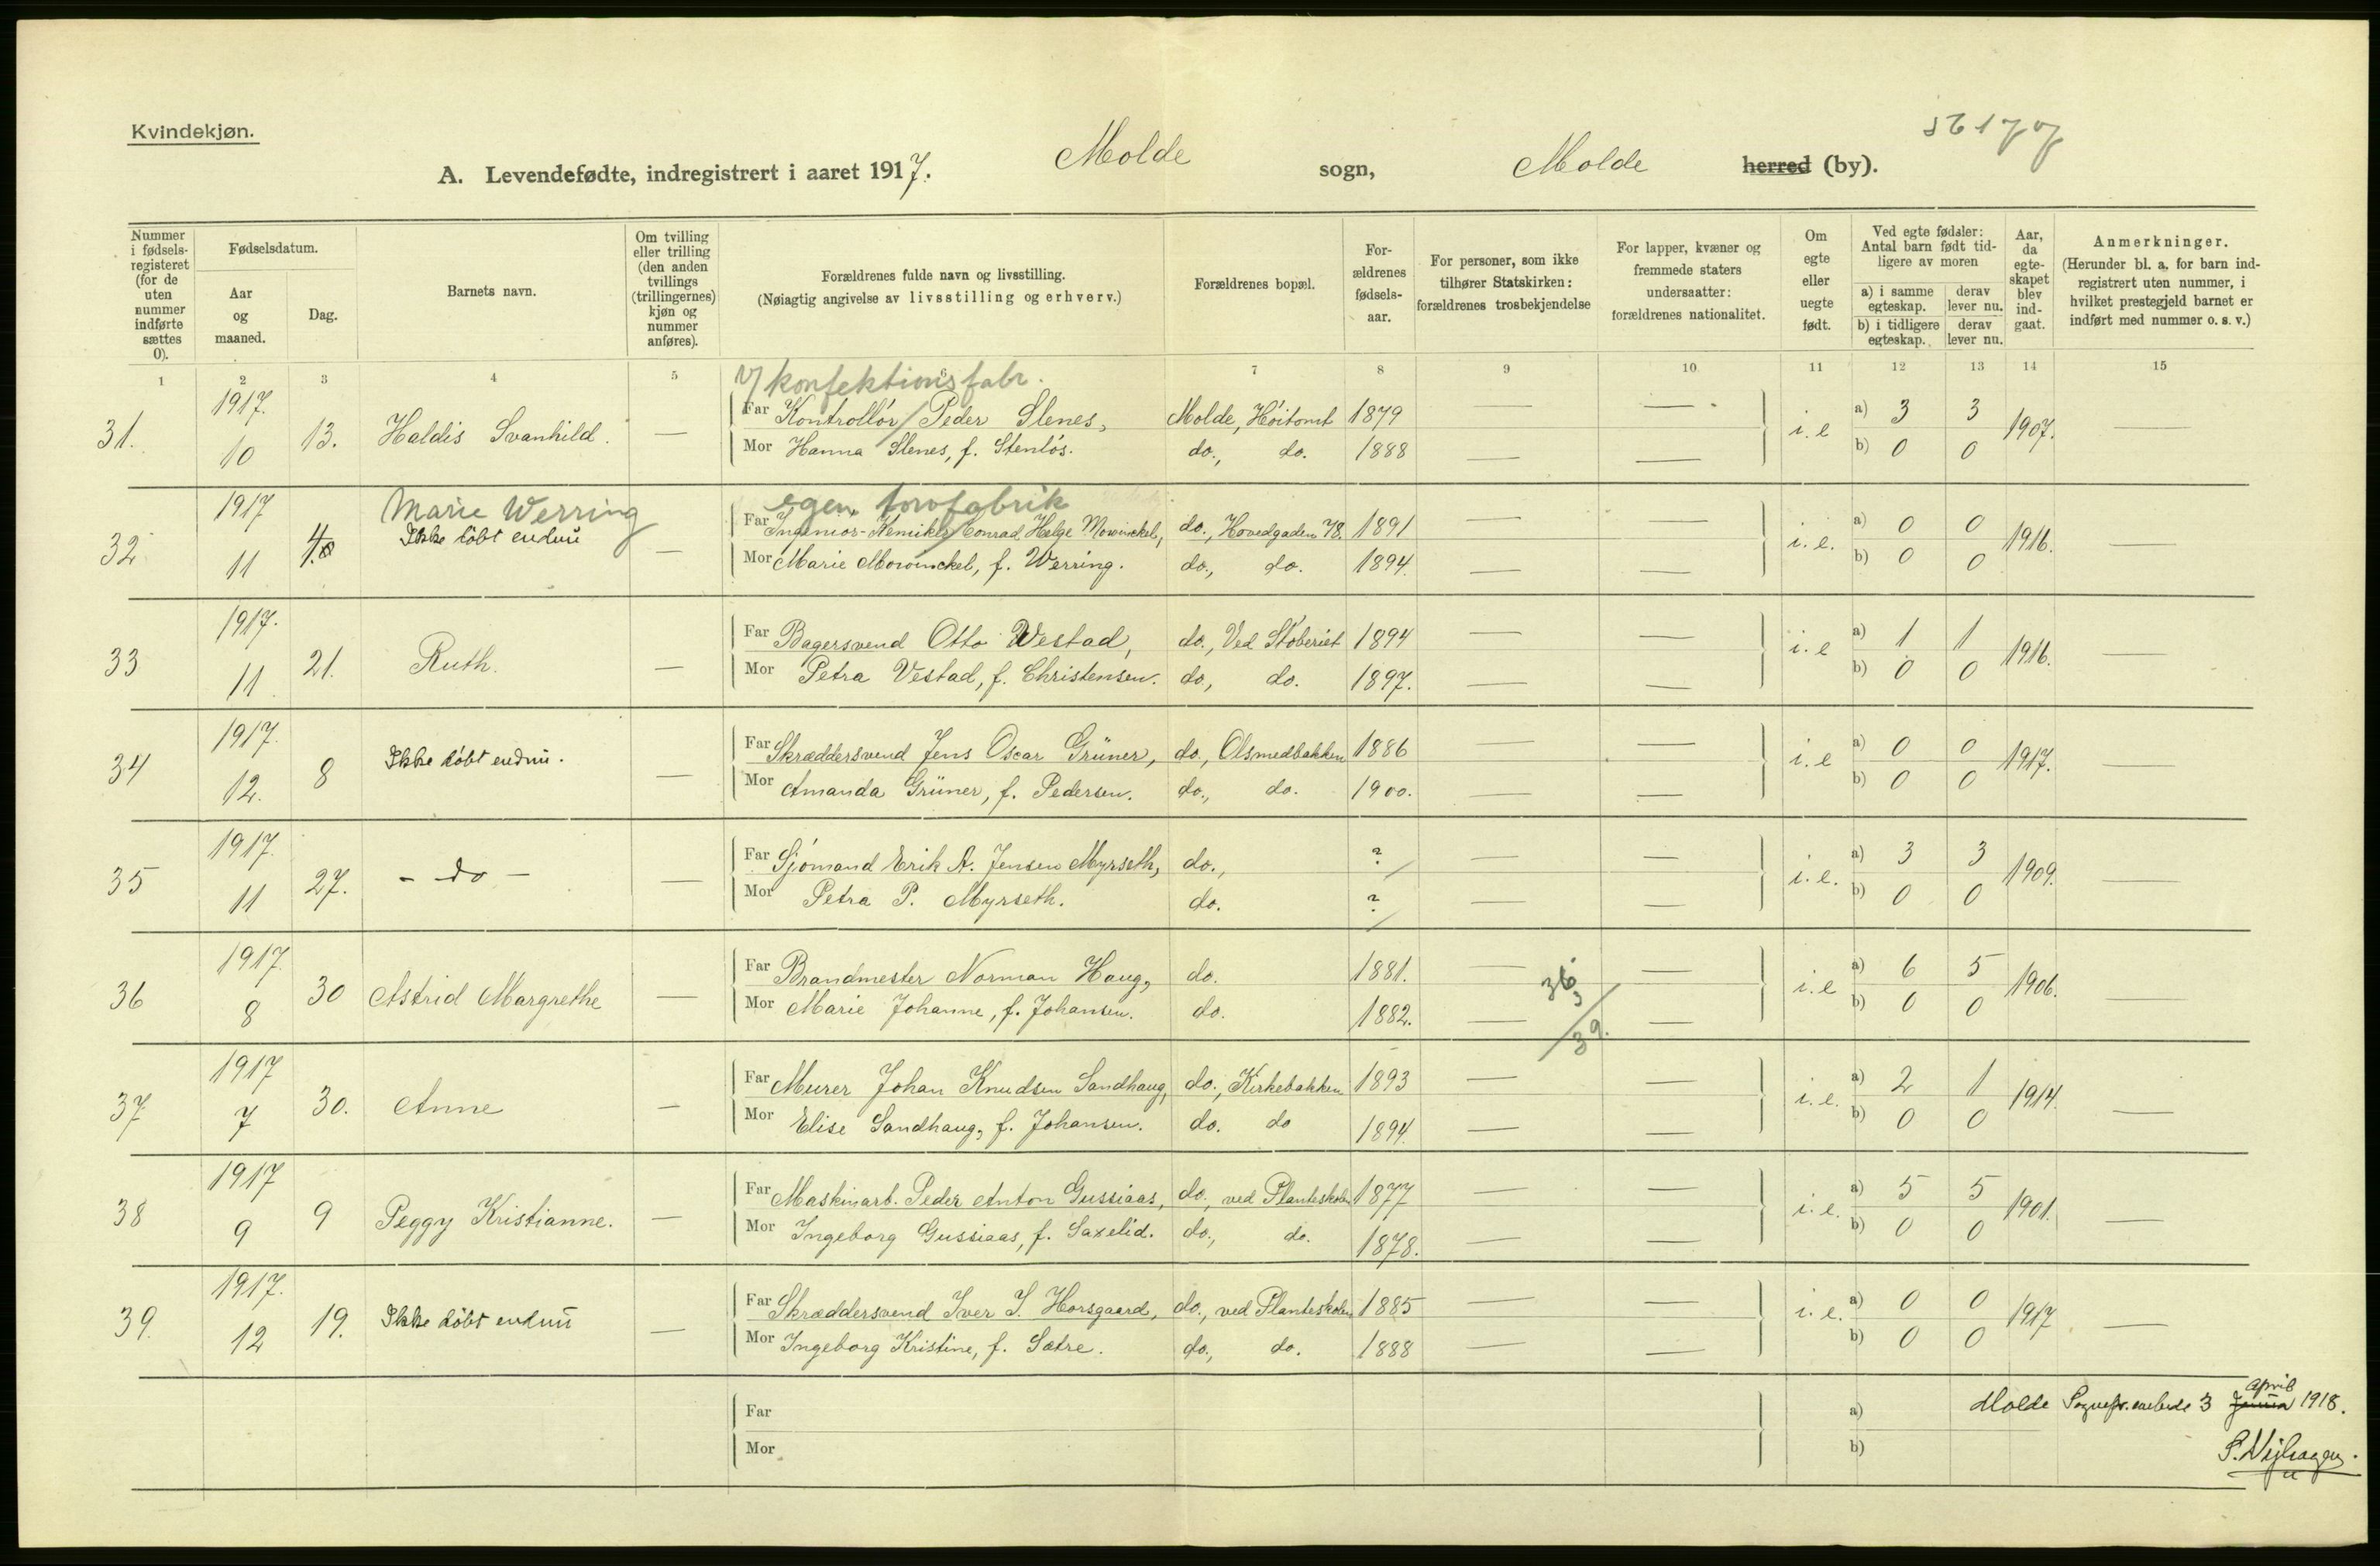 Kvindekjøn.
A. Levendefødte, indregistrert i aaret 1917. Molde sogn, Molde herred (by).
Nummer i fødsels-registeret (for de uten nummer indførte sættes 0).
Fødselsdatum.
Aar og maaned.
Dag.
Barnets navn.
Om tvilling eller trilling (den anden tvillings (trillingernes) kjøn og nummer anføres).
Forældrenes fulde navn og livsstilling.
(Nøiagtig angivelse av livsstilling og erhverv.)
Forældrenes bopæl.
For-ældrenes fødsels-aar.
For personer, som ikke tilhører Statskirken: forældrenes trosbekjendelse
For lapper, kvæner og fremmede staters undersaatter: forældrenes nationalitet.
Om egte eller uegte født.
Ved egte fødsler: Antal barn født tid-ligere av moren
a) i samme egteskap. derav lever nu.
b) i tidligere egteskap. derav lever nu.
Aar, da egte-skapet blev ind-gaat.
Anmerkninger.
(Herunder bl. a. for barn ind-registrert uten nummer, i hvilket prestegjeld barnet er indført med nummer o. s. v.)
1 2 3 4 5 6 7 8 9 10 11 12 13 14 15
konfektionsfabr.
31. 1917. 10 13. Haldis Svanhild. — Far Kontrollør Peder Slenes, Molde, Høitomt 1879 — — i. e a) 3 3 1907. —
Mor Hanna Slenes, f. Stenløs. do., do. 1888 — — b) 0 0
Marie Werring egen
32 1917 11 Ikke døbt endnu — Far Ingeniør-Kemiker Conrad Helge Mowinckel, do., Hovedgaden 78. 1891 — — i. e. a) 0 0 1916. —
Mor Marie Mowinckel, f. Werring. do., do. 1894. — — b) 0 0
33 1917. 11 21. Ruth. — Far Bagersvend Otto Westad, do., Ved Støberiet 1894 — — i. e a) 1 1 1916. —
Mor Petra Vestad, f. Christensen. do, do. 1897. — — b) 0 0
34 1917. 12. 8 Ikke døbt endnu. — Far Skræddersvend Jens Oscar Grüner, do., Olsmedbakken 1886 — — i. e a) 0 0 1917. —
Mor Amanda Grüner, f. Pedersen. do., do. 1900. — — b) 0 0
35 1917. 11 27. - do - — Far Sjømand Erik A. Jensen Myrseth, do., ? — — i. e. a) 3 3 1909. —
Mor Petra P. Myrseth. do. ? — — b) 0 0
36 1917. 8 30 Astrid Margrethe — Far Brandmester Norman Haug, do. 1881. — — i. e a) 6 5 1906. —
Mor Marie Johanne, f. Johansen. do. 1882. — — b) 0 0
36. 39.
37 1917 7 30. Anne — Far Murer Johan Knudsen Sandhaug, do., Kirkebakken 1893 — — i. e. a) 2 1 1914. —
Mor Elise Sandhaug, f. Johansen. do. do 1894. — — b) 0 0
38 1917 9 9 Peggy Kristianne. — Far Maskinarb. Peder Anton Gussiaas, do., ved Planteskolen 1877 — — i. e. a) 5 5 1901. —
Mor Ingeborg Gussiaas, f. Saxelid. do., do. 1878. — — b) 0 0
39. 1917. 12 19. Ikke døbt endnu — Far Skræddersvend Iver I. Horsgaard, do., ved Planteskolen 1885 — — i. e. a) 0 0 1917 —
Mor Ingeborg Kristine, f. Sætre. do., do. 1888 — — b) 0 0
Far a) Molde 3 April 1918.
Mor b)